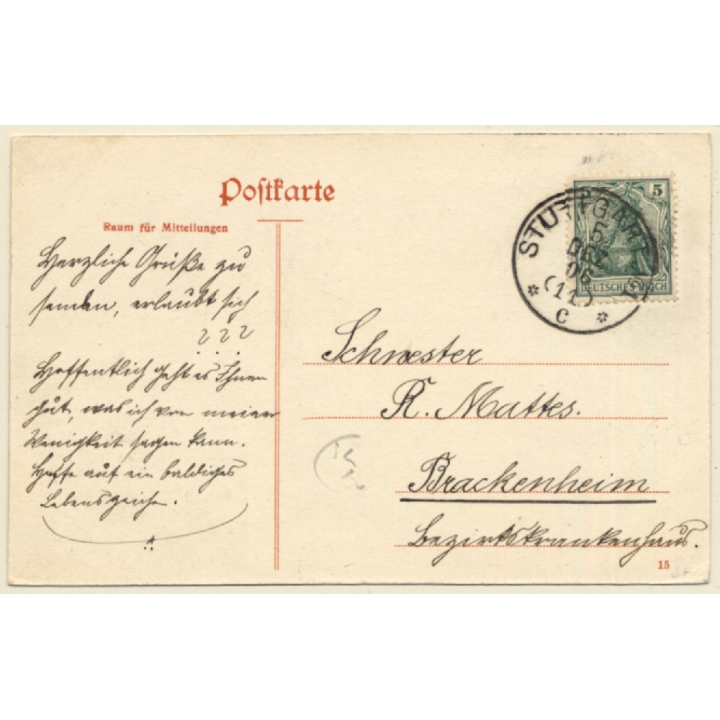 Postkarte
Raum für Mitteilungen
Herzliche Grüße zu
senden, erlaubt sich
? ? ?
Hoffentlich geht es Ihnen
gut, was ich von meiner
Wenigkeit sagen kann.
Hoffe auf ein baldiges
Lebenszeichen.
5
DEUTSCHES REICH
STUTTGART
5
DEZ
06
(11)
* C *
Schwester
R. Mattes.
Brackenheim
Bezirkskrankenhaus.
15